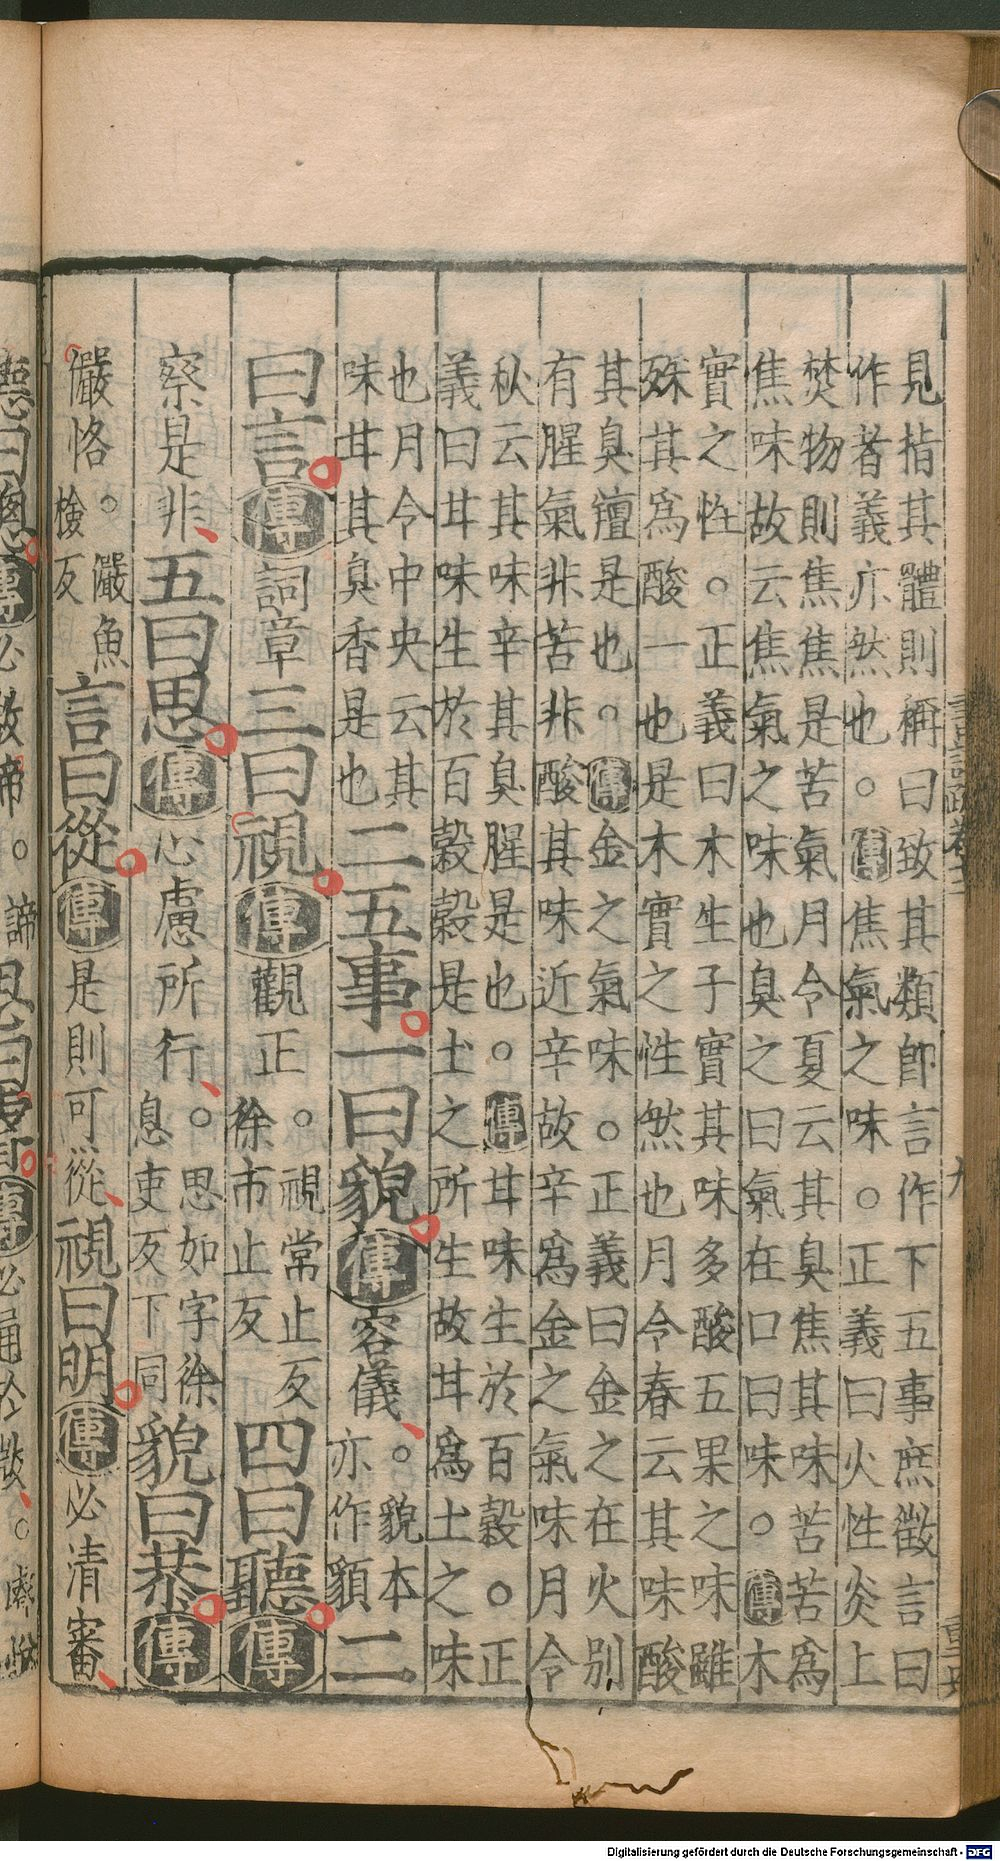 見指其體則稱曰致其類即言作下五事庶徵言曰
作者義亦然也。傳焦氣之味。正義曰火性炎上
焚物則焦焦是苦氣月令夏云其臭焦其味苦苦爲
焦味故云焦氣之味也臭之曰氣在口曰味。傳木
實之性。正義曰木生子實其味多酸五果之味雖
殊其爲酸一也是木實之性然也月令春云其味酸
其臭羶是也。傳金之氣味。正義曰金之在火别
有腥氣非苦非酸其味近辛故辛爲金之氣味月令
秋云其味辛其臭腥是也。傳甘味生於百穀。正
義曰甘味生於百穀穀是土之所生故甘爲土之味
也月令中央云其
味甘其臭香是也二五事一曰貌傳容儀。貌本亦作䫉二
曰言傳詞章三曰視傳觀正。視常止反徐市止反四曰聽傳
察是非五曰思傳心慮所行。思如字徐息吏反下同貌曰恭傳
儼恪。儼魚檢反言曰從傳是則可從視曰明傳必清審
Digitalisierung gefördert durch die Deutsche Forschungsgemeinschaft - DFG